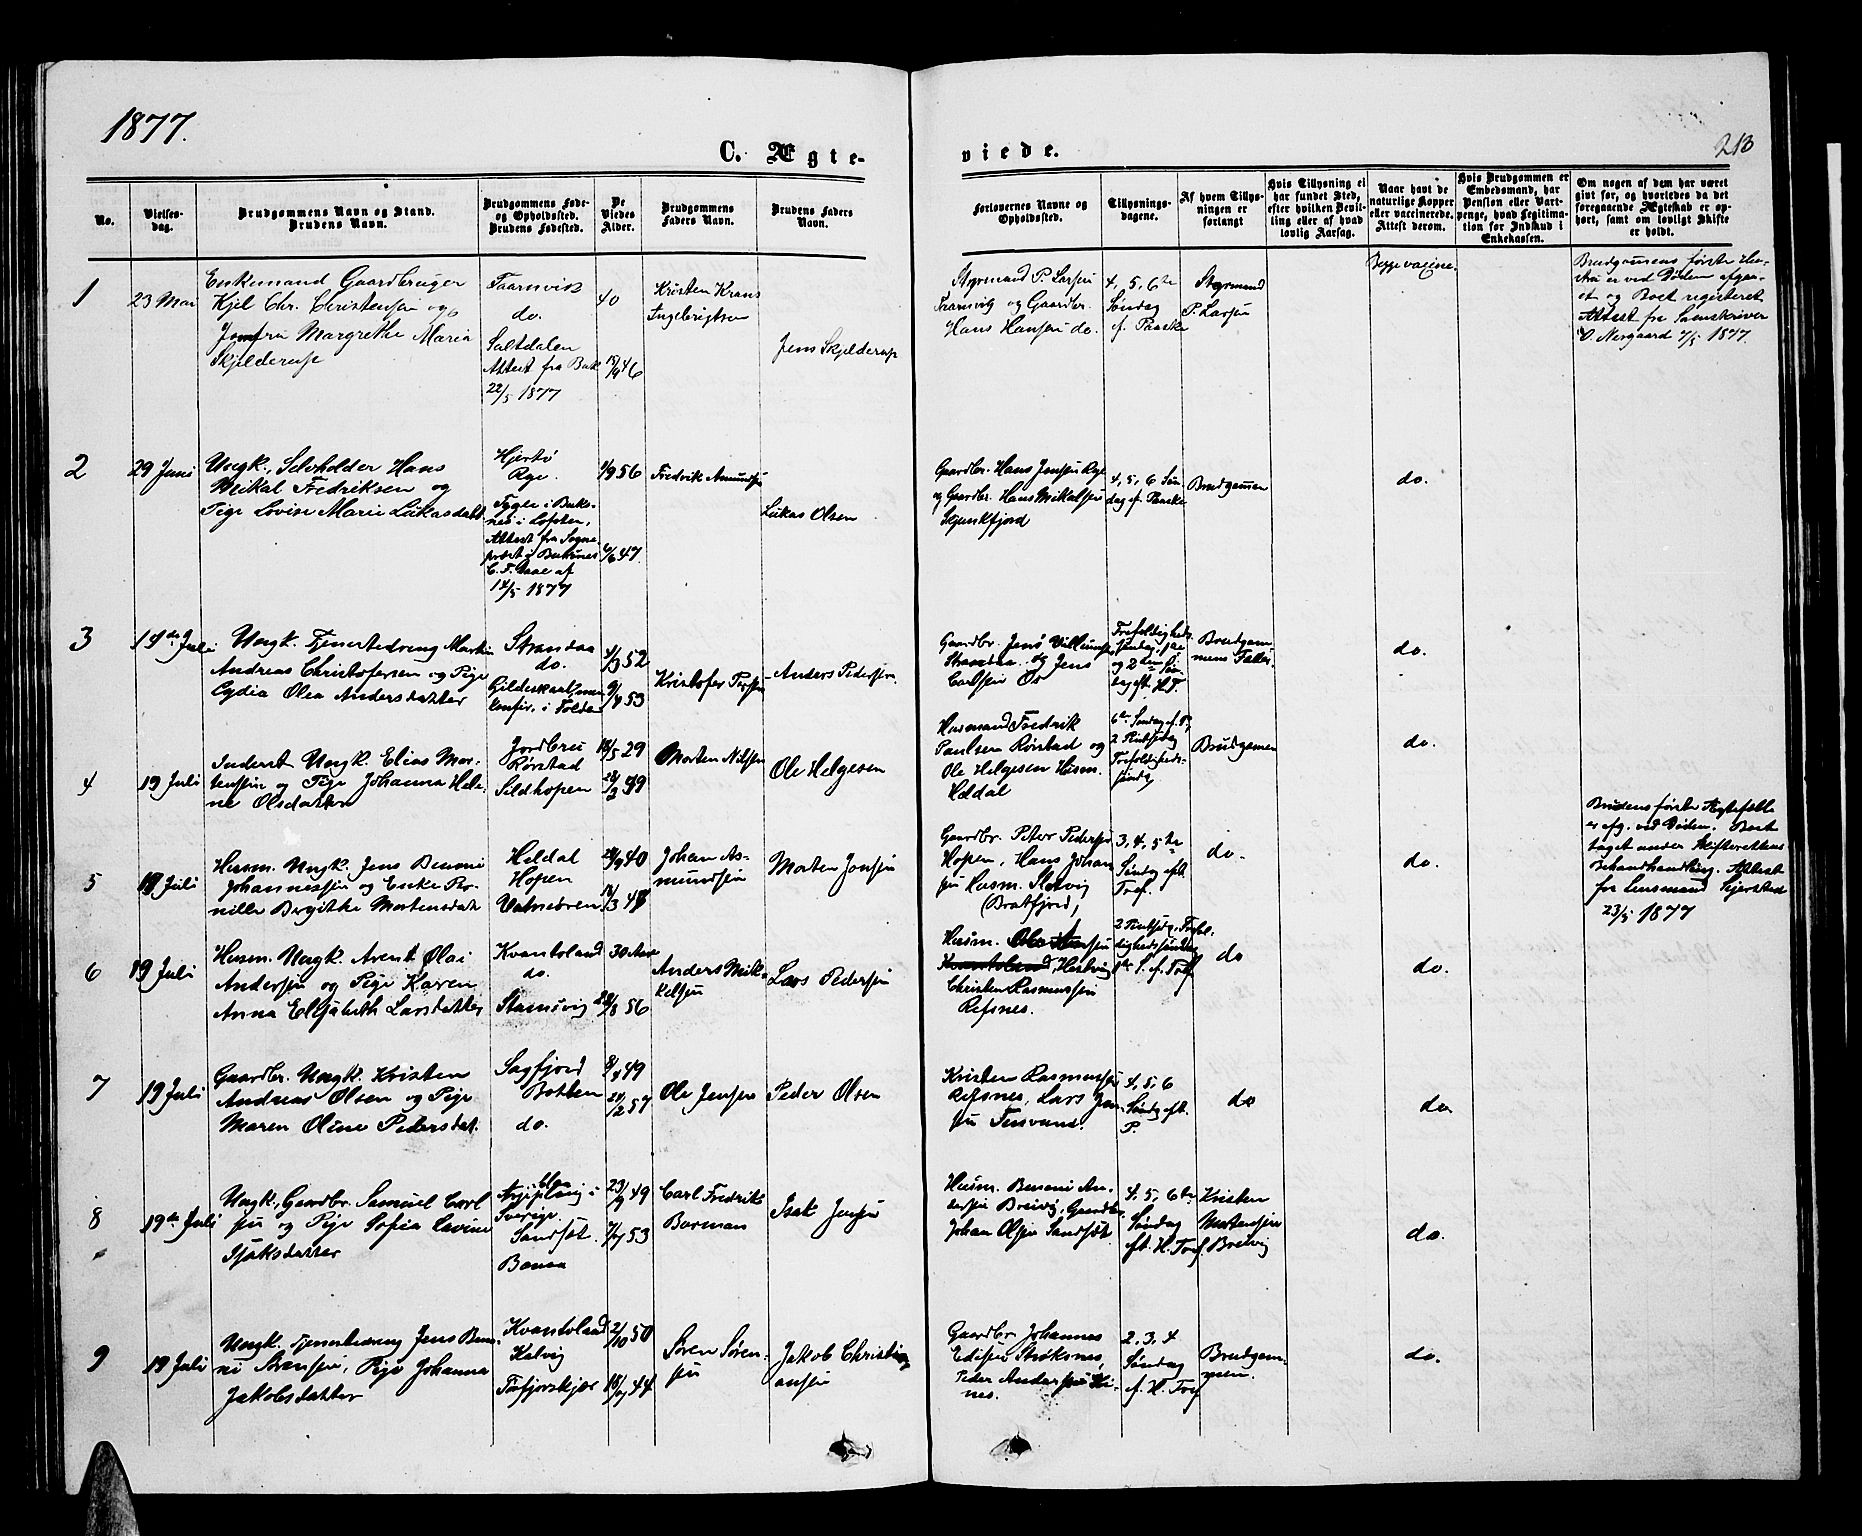 1877.
213
C. Ægte-
viede.
No.
Vielses-
dag.
Brudgommens Navn og Stand.
Brudens Navn.
Brudgommens Føde-
og Opholdssted.
Brudens Fødested.
De
Viedes
Alder.
Brudgommens
Faders Navn.
Brudens Faders
Navn.
Forlovernes Navne og
Opholdssted.
Tillysnings-
dagene.
Af hvem Tillys-
ningen er
forlangt
Hvis Tillysning ei
har fundet Sted,
efter hvilken Bevil-
ling eller af hvad
lovlig Aarsag.
Naar havt de
naturlige Kopper
eller vaccinerede.
Attest derom.
Hvis Brudgommen er
Embedsmand, har
Pension eller Vart-
penge, hvad Legitima-
tion for Indskud i
Enkekassen.
Om nogen af dem har været
gift før, og hvorledes da det
foregaaende Ægteskab er op-
hørt, samt om lovligt Skifte
er holdt.
1
23 Mai
Enkemand Gaardbruger
Kjel Chr. Christensen og
Jomfru Margrethe Maria
Skjelderup
do.
Saltdalen
Attest fra
22/5 1877
40
46
Kristen Krans
Ingebrigtsen
Jens Skjelderup
Styrmand P. Larsen
og Gaardbr.
Hans Hansen do.
4, 5, 6te
Søndag
ef. Paaske
Styrmand
P. Larsen
Begge vaccine.
Brudgomens første Hu-
stru er ved Døden afgaa-
et og Boet registreret
Attest fra
Norgaard 7/5 1877.
2
29 Juni
Ungk., Selvholder Hans
Mikal Fredriksen og
Pige Lovise Marie Lukasdatt
Hjertø
Røge.
i Buks-
nes i Lofoten,
Attest fra Sogne-
præst i Buksnes
af
14/5 1877
1/9 56
6/6 47.
Fredrik Amundsen
Lukas Olsen
Gaardbr. Hans Jensen
og Gaardbr. Hans Mikalsen
Skjunkfjord
4, 5, 6 Søn
dag ef. Paaske
Brudgommen
do.
3
Juli
Ungk. Tjenestedreng Martin
Andreas Christofersen og Pige
Lydia Olea Andersdatter
Strandaa
do.
Gildeskaal, men
konfir. i Folden
52
53
Kristofer
Anders Pedersen.
Gaardbr. Jens Villumsen
Strandaa og Jens
Carlsen Os
Trefoldigheds-
søndag, 1ste
og 2den Søn
dag eft. H.T.
Brudgom-
mens Fader.
do.
4
19 Juli
Inderst Ungk. Elias Mor-
tensen og Pige Johanna Hele-
ne Olsdatter
Jordbru
Rørstad
Seldhopen
18/5 29
Morten Nilsen
Ole Helgesen
Husmand Fredrik
Paulsen Rørstad og
Ole Helgesen Husm.
Heldal
6te Søndag ef. P.,
2 Pintsedag
Trefoldigheds-
søndag
Brudgomen
do.
5
19 Juli
Husm. Ungk. Jens Benoni
Johannessen og Enke Per-
nille Birgitte Mortensdat
Heldal
Hopen
Valnesbren.
40
48
Johan As-
mundsen
Morten Jonsen
Gaardbr. Peter Pedersen
Hopen, Hans Johan
sen Husm. Slotvig
(Bratfjord)
3, 4, 5te
Søndag eft.
Tref.
do.
do.
Brudens første Ægtefælle
er afg. ved Døden. Boet
taget under Skifterettens
Behandling. Attest
fra Lensmand Sejersted
23/5 1877
6
19 Juli
Husm. Ungk. Arent Olai
Andersen og Pige Karen
Anna Elisabeth Larsdatter
Kvantoland
do.
Stamsvig
30 Aar
56
Anders Mik-
kelsen
Lars Pedersen
Husm.
Kvantoland, Hestvig
Christen Rasmussen
Refsnes.
2 Pintsedg., Trefol-
dighedssøndag
1ste S. ef. Tref.
do
do.
7
19 Juli
Gaardbr. Ungk. Kristen
Andreas Olsen og Pige
Maren Oline Pedersdat.
Sagfjord
Botten
do.
49
57
Ole Jensen
Peder Olsen
Kristen Rasmussen
Refsnes, Lars Jen-
sen Tensvand.
4, 5, 6
Søndg eft.
P.
do
do.
8
19de Juli
Ungk., Gaardbr. Samuel Carl
sen og Pige Sofia Lovine
Isaksdatter
i
Sverige.
Sandset.
23/9 49
53
Carl Fredrik
Borman
Isak Jensen
Husm. Benoni An-
dersen Breivig, Gaardbr.
Johan Olsen Sandset.
4, 5, 6te
Søndag
eft. H. Tref.
Kristen
Mortensen
Breivig
do.
9
19 Juli
Ungk. Tjenestedreng Jens Beno-
ni Sørensen, Pige Johanna
Jakobsdatter
Kvantoland
Kalvig
2/10 50
44
Søren Søren-
sen
Jakob Christi-
ansen
Gaardbr. Johannes
Edisen Strøksnes,
Peder Andersen
nes.
2, 3, 4
Søndag
ef. H. Tref
Brudgom-
men.
do.